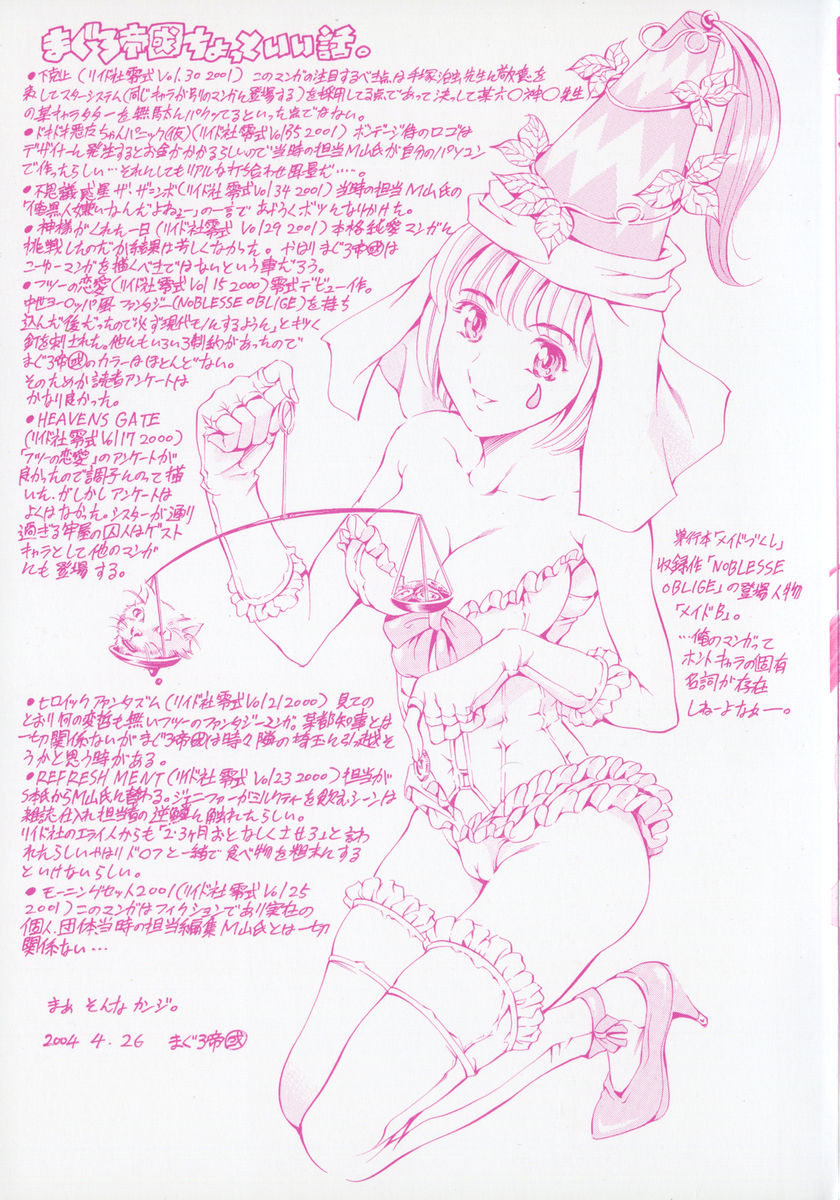 まぐろ帝國ちょっといい話。
●下剋上(リイド社零式Vol.30 2001) このマンガの注目するべき点は手塚治虫先生に敬意を
表してスターシステム(同じキャラが別のマンガに登場する)を採用してる点であって決して某六〇神〇先生
の某キャラクターを無駄にパクってるといった点ではない。
(仮)(リイド社零式Vol35 2001) ボンデージ侍のロゴは
デザイナーに発注するとお金がかかるらしいので当時の担当M山氏が自分のパソコン
で作ったらしい…それにしてもリアルな打ち合わせ風景だ‥‥。
●不思議惑星ザ・ザンボ(リイド社零式Vol34 2001)当時の担当M山氏の
「俺異人嫌いなんだよねェー」の一言であやうくボツになりかけた。
●神様がくれた一日(リイド社零式Vol29 2001)本格純愛マンガに
挑戦したのだが結果は芳しくなかった。やはりまぐろ帝國は
マンガを描くべきではないという事だろう。
●フツーの恋愛(リイド社零式Vol15 2000)零式デビュー作。
中世ヨーロッパ風ファンタジー(NOBLESSE OBLIGE)を持ち
込んだ後だったので「必ず現代モノにするように」とキツく
釘を刺された。他にもいろいろ制約があったので
まぐろ帝國のカラーはほとんどない。
そのためか読者アンケートは
かなり良かった。
●HEAVENS GATE
(リイド社零式Vol17 2000)
「フツーの恋愛」のアンケートが
良かったので調子にのって描
いた。がしかしアンケートは
よくはなかった。シスターが通り
過ぎる牢屋の囚人はゲスト
キャラとして他のマンガ
にも登場する。
単行本「メイドづくし」
収録作「NOBLESSE
OBLIGE」の登場人物
「メイドB」。
…俺のマンガって
ホントキャラの固有
名詞が存在
しねーよなァー。
●ヒロイックファンタズム(リイド社零式Vol21 2000) 見ての
とおり何の変哲も無いフツーのファンタジーマンガ。某都知事とは
一切関係ないがまぐろ帝國は時々隣の埼玉に引っ越そ
うかと思う時がある。
●REFRESH MENT(リイド社零式Vol23 2000)担当が
S本氏からM山氏に替わる。ジェニファーがミルクティーを飲むシーンは
雑誌仕入れ担当者の逆鱗に触れたらしい。
リイド社のエライ人からも「2・3ヶ月おとなしくさせろ」と言わ
れたらしい やはりドロンと一緒で食べ物を粗末にする
といけないらしい。
●モーニングセット2001(リイド社零式Vol25
2001)このマンガはフィクションであり実在の
個人、団体当時の担当編集M山氏とは一切
関係ない…
まぁ そんなカンジ。
2004 4.26 まぐろ帝國